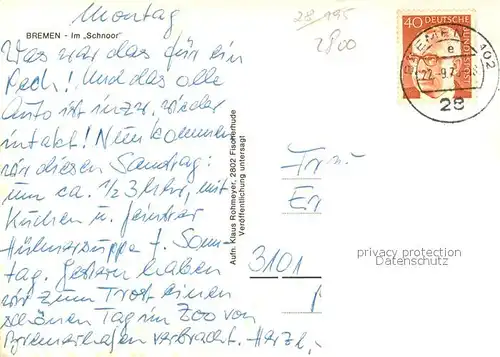 Montag
BREMEN - Im „Schnoor"
Was war das für ein
Pech! Und das olle
Auto ist inzw. wieder
intakt! Nun kommen
wir diesen Samstag:
um ca. 1/2 3 Uhr, mit
Kuchen u. feinster
Hühnersuppe f. Sonn-
tag. Gestern haben
wir zum Trost einen
schönen Tag im Zoo von
Bremerhafen verbracht. Herzl.
Aufn. Klaus Rohmeyer, 2802 Fischerhude
Veröffentlichung untersagt
28 195
2800
40 DEUTSCHE
BUNDESPOST
BREMEN 102
e
22.-9.7
28
Fr
Er
3101
privacy protection
Datenschutz